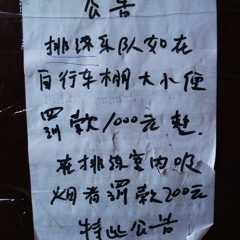 公告
排练乐队如在
自行车棚大小便
罚款1000元整.
在排练室内吸
烟者罚款200元
特此公告